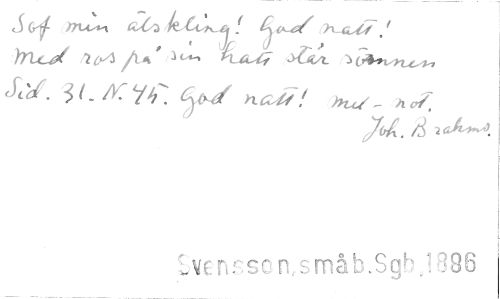 Sof min älskling! God natt!
Med ros på sin hatt står sömnen
Sid. 31. N. 45. God natt! mel-not.
Joh. Brahms.
Svensson, småb. Sgb, 1886